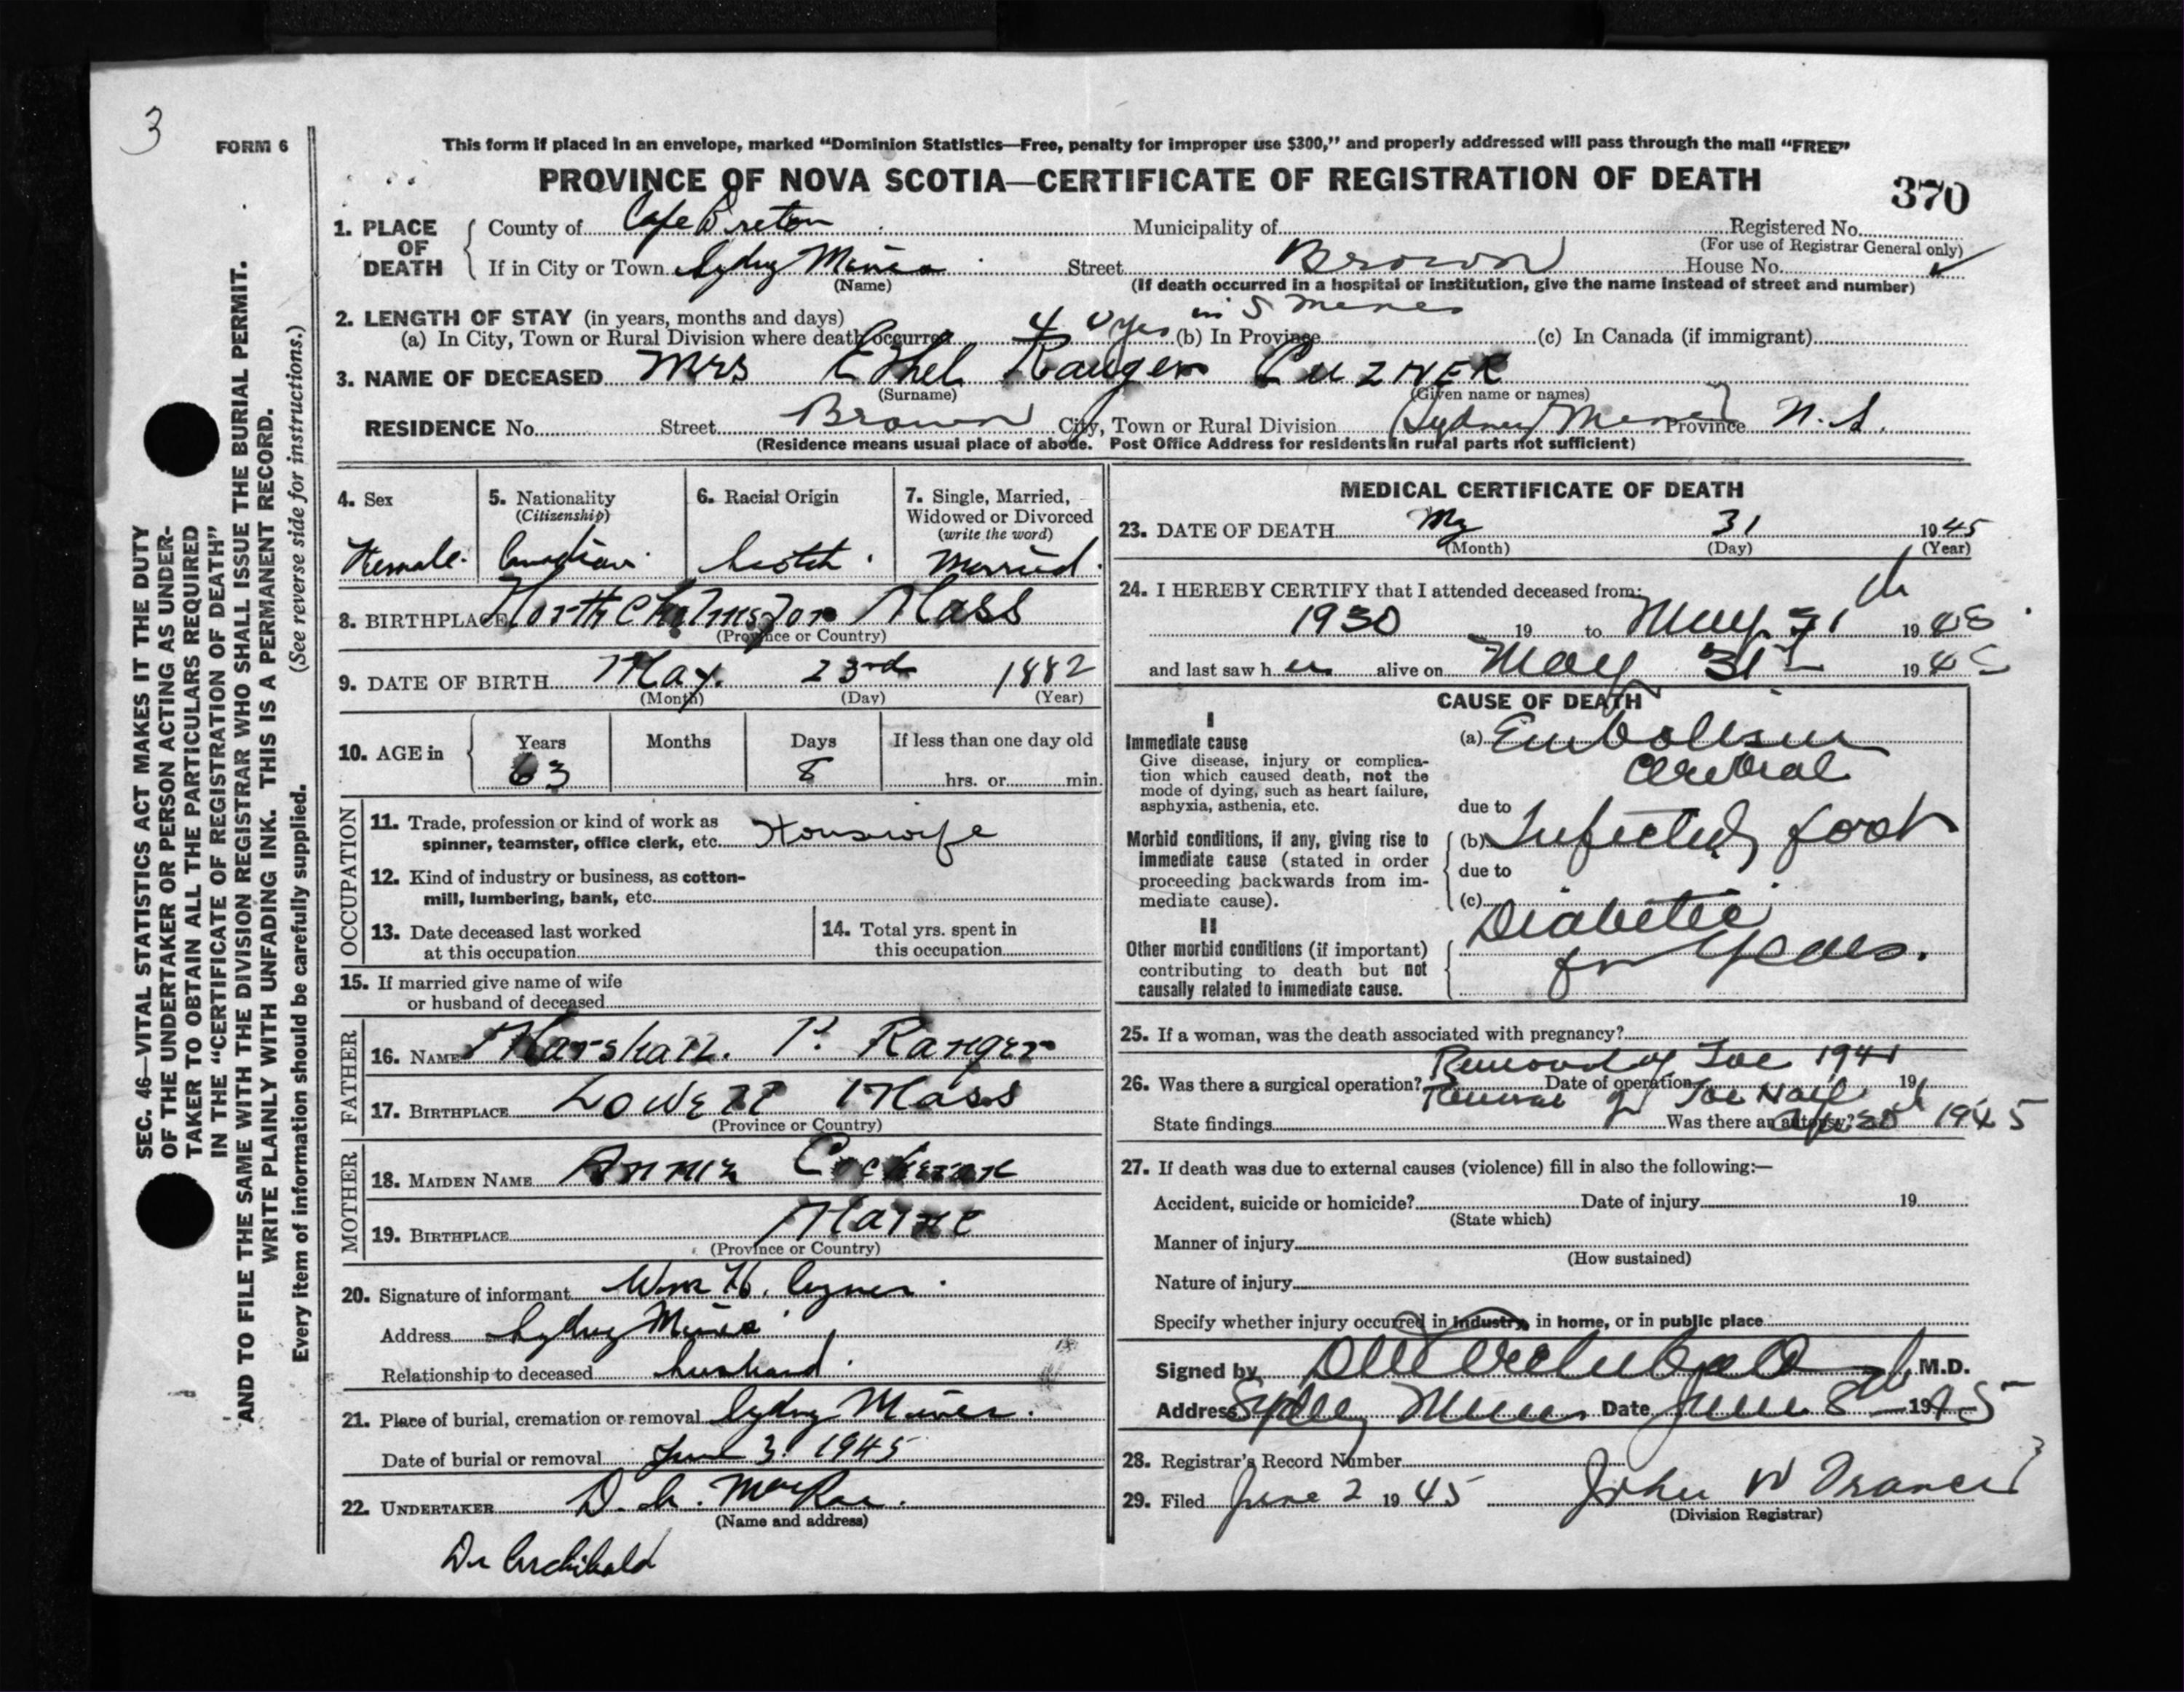 3
FORM 6
This form if placed in an envelope, marked “Dominion Statistics—Free, penalty for improper use $300,” and properly addressed will pass through the mail “FREE”
PROVINCE OF NOVA SCOTIA—CERTIFICATE OF REGISTRATION OF DEATH
370
SEC. 46—VITAL STATISTICS ACT MAKES IT THE DUTY
OF THE UNDERTAKER OR PERSON ACTING AS UNDER-
TAKER TO OBTAIN ALL THE PARTICULARS REQUIRED
IN THE “CERTIFICATE OF REGISTRATION OF DEATH”
AND TO FILE THE SAME WITH THE DIVISION REGISTRAR WHO SHALL ISSUE THE BURIAL PERMIT.
WRITE PLAINLY WITH UNFADING INK. THIS IS A PERMANENT RECORD.
Every item of information should be carefully supplied. (See reverse side for instructions.)
1. PLACE OF DEATH
County of Cape Breton Municipality of Registered No.
(For use of Registrar General only)
If in City or Town Sydney Mines Street Brown House No.
(Name) (If death occurred in a hospital or institution, give the name instead of street and number)
2. LENGTH OF STAY (in years, months and days) in S Mines
(a) In City, Town or Rural Division where death occurred 40 yrs (b) In Province (c) In Canada (if immigrant)
3. NAME OF DECEASED Mrs Ethel Ranger CUZNER
(Surname) (Given name or names)
RESIDENCE No. Street Brown City, Town or Rural Division Sydney Mines Province N.S.
(Residence means usual place of abode. Post Office Address for residents in rural parts not sufficient)
4. Sex
Female.
5. Nationality
(Citizenship)
Canadian
6. Racial Origin
Scotch
7. Single, Married,
Widowed or Divorced
(write the word)
Married.
8. BIRTHPLACE North Chelmsford Mass
(Province or Country)
9. DATE OF BIRTH May. 23rd 1882
(Month) (Day) (Year)
10. AGE in Years Months Days If less than one day old
63 8 hrs. or min.
OCCUPATION
11. Trade, profession or kind of work as
spinner, teamster, office clerk, etc. Housewife
12. Kind of industry or business, as cotton-
mill, lumbering, bank, etc.
13. Date deceased last worked
at this occupation
14. Total yrs. spent in
this occupation
15. If married give name of wife
or husband of deceased
FATHER
16. NAME Marshall. P. Ranger
17. BIRTHPLACE Lowell Mass
(Province or Country)
MOTHER
18. MAIDEN NAME Annie
19. BIRTHPLACE Maine
(Province or Country)
20. Signature of informant Wm H. Cuzner
Address Sydney Mines
Relationship to deceased husband.
21. Place of burial, cremation or removal Sydney Mines.
Date of burial or removal June 3. 1945
22. UNDERTAKER MacRae.
(Name and address)
Dr Archibald
MEDICAL CERTIFICATE OF DEATH
23. DATE OF DEATH May 31 1945
(Month) (Day) (Year)
24. I HEREBY CERTIFY that I attended deceased from:
1930 19 to May 31 th 1945
and last saw her alive on May 31st 1945
CAUSE OF DEATH
I
Immediate cause
Give disease, injury or complica-
tion which caused death, not the
mode of dying, such as heart failure,
asphyxia, asthenia, etc.
(a) Embolism
Cerebral
due to
Morbid conditions, if any, giving rise to
immediate cause (stated in order
proceeding backwards from im-
mediate cause).
(b) Infected foot
due to
(c)
Diabetic
for years.
II
Other morbid conditions (if important)
contributing to death but not
causally related to immediate cause.
25. If a woman, was the death associated with pregnancy?
Removal of Toe 1941
26. Was there a surgical operation? Date of operation 19
Removal of Toe Nail
State findings Was there an autopsy? 1945
27. If death was due to external causes (violence) fill in also the following:—
Accident, suicide or homicide? Date of injury 19
(State which)
Manner of injury
(How sustained)
Nature of injury
Specify whether injury occurred in industry, in home, or in public place
Signed by Archibald M.D.
Address Sydney Mines Date June 8th 1945
28. Registrar’s Record Number
29. Filed June 2 1945 John W Francis
(Division Registrar)